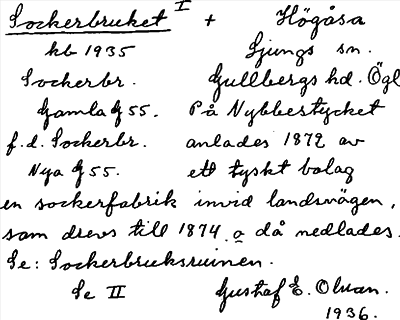 Sockerbruket I + Högåsa
hb 1935 Ljungs sn.
Sockerbr. Gullbergs hd. Ögl
Gamla G 55. På Nybbestycket
f.d. Sockerbr. anlades 1872 av
Nya G 55. ett tyskt bolag
en sockerfabrik invid landsvägen,
som drevs till 1874 o då nedlades.
Se: Sockerbruksruinen.
Se II Gustaf E. Olwan.
1936.